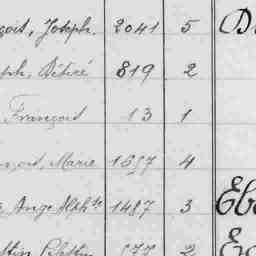 çois, Joseph 2041 5
ph, Désiré 819 2
François 13 1
nçois, Marie 4
Ange Alphse 1487 3
2